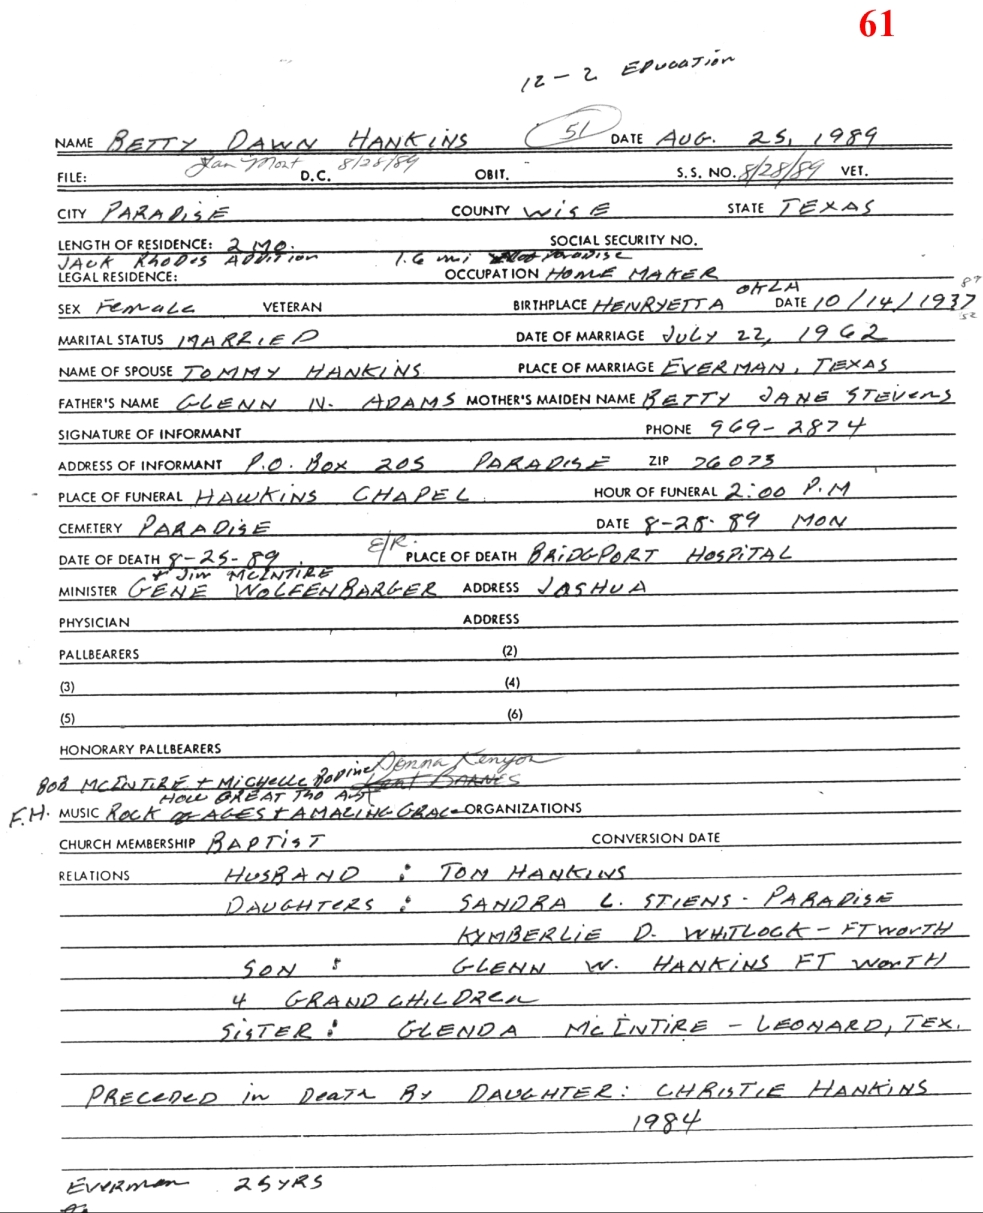 61
12-2 EDUCATION
NAME BETTY DAWN HANKINS 51 DATE AUG. 25, 1989
FILE: 8/28/89 D.C. OBIT. S.S. NO. 8/28/89 VET.
CITY PARADISE COUNTY WISE STATE TEXAS
LENGTH OF RESIDENCE: 2 MO. SOCIAL SECURITY NO.
JACK RHODES ADDITION 1.6 mi Paradise
LEGAL RESIDENCE: OCCUPATION HOME MAKER
SEX Female VETERAN BIRTHPLACE HENRYETTA OKLA DATE 10/14/1937
MARITAL STATUS MARRIED DATE OF MARRIAGE JULY 22, 1962
NAME OF SPOUSE TOMMY HANKINS PLACE OF MARRIAGE EVERMAN, TEXAS
FATHER'S NAME GLENN N. ADAMS MOTHER'S MAIDEN NAME BETTY JANE STEVENS
SIGNATURE OF INFORMANT PHONE 969-2874
ADDRESS OF INFORMANT P.O. BOX 205 PARADISE ZIP 76073
PLACE OF FUNERAL HAWKINS CHAPEL HOUR OF FUNERAL 2:00 P.M
CEMETERY PARADISE DATE 8-28-89 MON
DATE OF DEATH 8-25-89 E/R. PLACE OF DEATH BRIDGPORT HOSPITAL
+ Jim McINTIRE
MINISTER GENE WOLFENBARGER ADDRESS JOSHUA
PHYSICIAN ADDRESS
PALLBEARERS (2)
(3) (4)
(5) (6)
HONORARY PALLBEARERS
BOB McINTIRE + MICHELLE BODINE Donna Kenyon BARNES
HOW GREAT THO ART
F.H. MUSIC ROCK OF AGES + AMAZING GRACE ORGANIZATIONS
CHURCH MEMBERSHIP BAPTIST CONVERSION DATE
RELATIONS HUSBAND : TOM HANKINS
DAUGHTERS : SANDRA L. STIENS - PARADISE
KYMBERLIE D. WHITLOCK - FT WORTH
SON : GLENN W. HANKINS FT WORTH
4 GRANDCHILDREN
SISTER : GLENDA McINTIRE - LEONARD, TEX.
PRECEDED in Death By DAUGHTER: CHRISTIE HANKINS
1984
EVERMAN 25 YRS